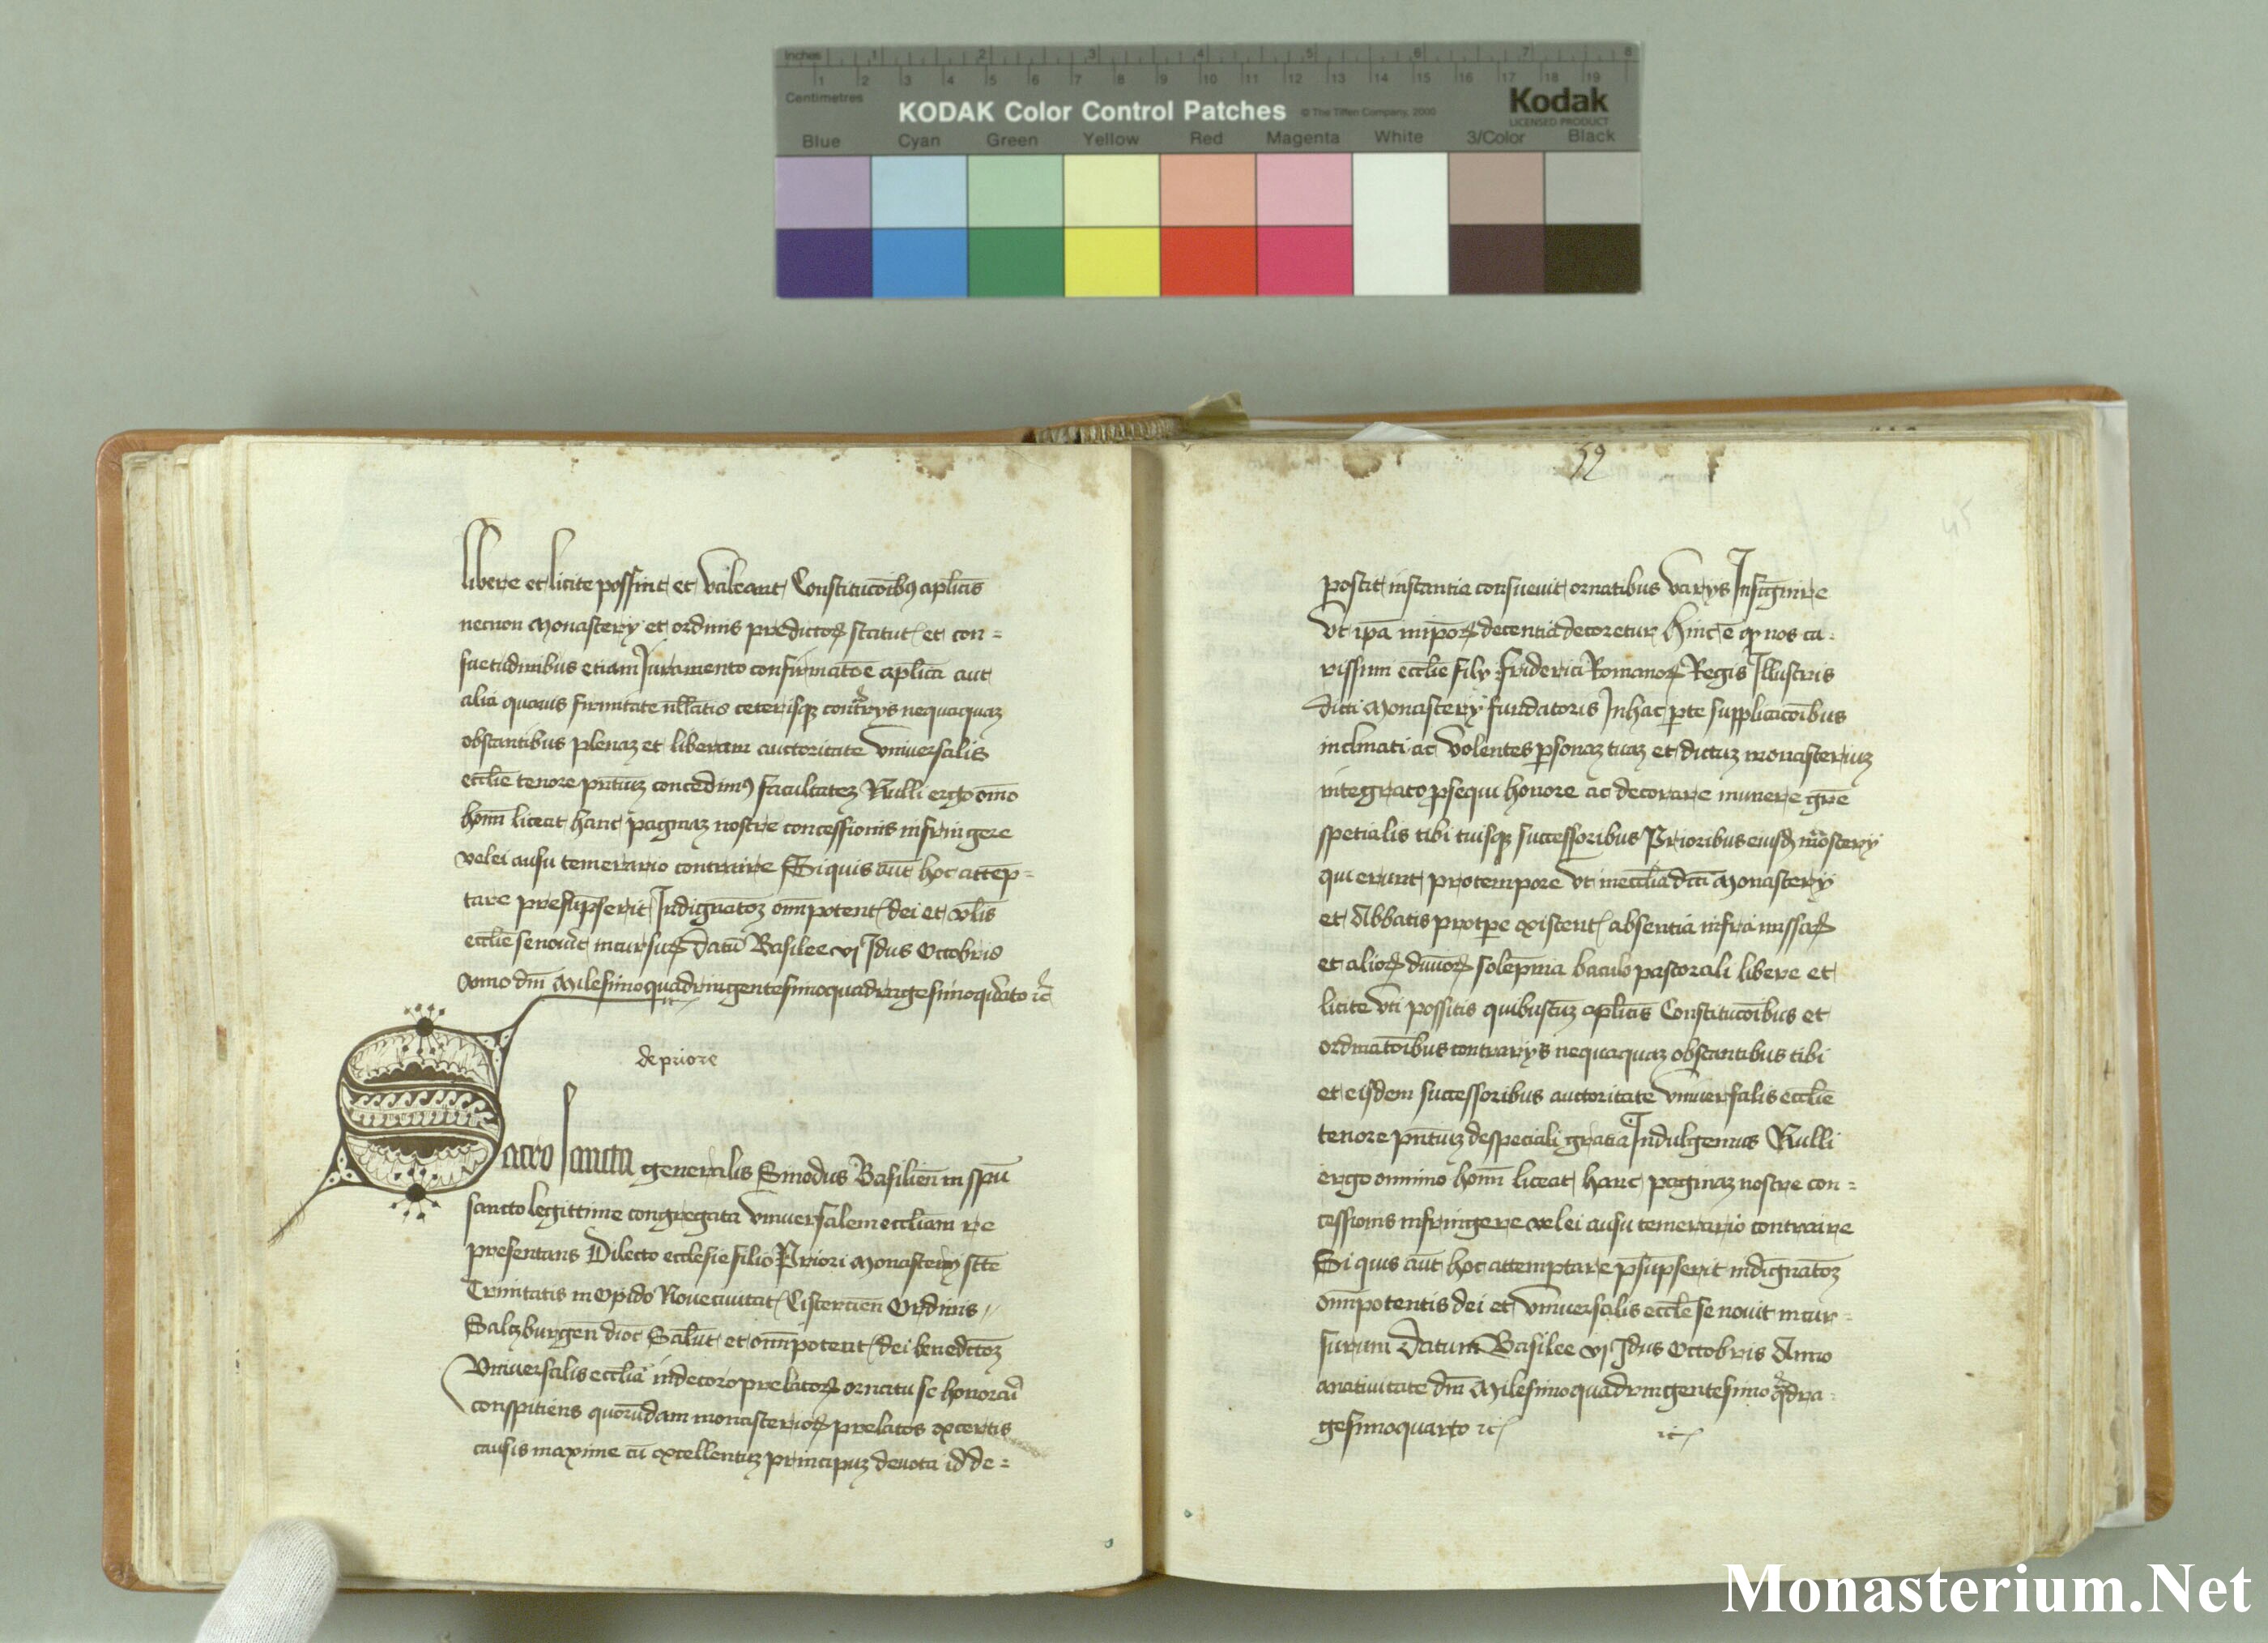 Inches 1 2 3 4 5 6 7 8
1 2 3 4 5 6 7 8 9 10 11 12 13 14 15 16 17 18 19
Centimetres
KODAK Color Control Patches © The Tiffen Company, 2000 Kodak
LICENSED PRODUCT
Blue Cyan Green Yellow Red Magenta White 3/Color Black
libere et licite possint et valeant Constitucōibꝯ aplicis
necnon Monastery et ordinis predictoꝝ statut et con=
suetudinibus etiam Juramento confirmatōe aplica aut
alia quauis firmitate ullatis ceterisqꝫ contrys nequaquaꝫ
obstantibus plenaꝫ et liberam auctoritate vniuersalis
ecclie tenore pntiuꝫ concedimꝯ facultateꝫ Nulli ergo omo
homī liceat hanc paginaꝫ nostre concessionis infringere
vel ei ausu temerario contraire Si quis aut hoc attēp=
tare presūpserit Indignatōꝫ omipotent dei et vlis
ecclie se nouit incursuꝝ Datū Basilee vj Idus Octobris
Anno dnī Milesimoquadringentesimoquadragesimoqrato ꝛc
de priore
Sacro sancta generalis Sinodus Basilien in spū
sancto legittime congregata vniuersalem eccliam re
presentans Dilecto ecclesie filio Priori Monastery scte
Trinitatis in Opido Nouecivitat Cistercien Ordinis
Salczburgen dioc Salut et omipotent dei benedictōꝫ
Vniuersalis ecclia in decoro prelatoꝝ ornatu se honorari
conspitiens quorundam monasterioꝝ prelatos ex certis
causis maxime cū excellentiuꝫ principuꝫ deuota id de=
52
45
poscit instantia consueuit ornatibus varys Insignire
Vt ipa impoꝝ decentia decoretur Hinc ē qꝫ nos ca=
rissimi ecclie fily Friderici Romanoꝝ Regis Illustris
dicti Monastery fundatoris In hac pte supplicacōibus
inclinati ac volentes psonaꝫ tuaꝫ et dictuꝫ monasteriuꝫ
integrato psequi honore ac decorare munere grē
spetialis tibi tuisqꝫ successoribus Prioribus eiusd mōstery
qui erunt pro tempore vt in ecclia dicti Monastery
et Abbatis pro tpe existent absentia infra missaꝝ
et alioꝝ diuinoꝝ solēpnia baculo pastorali libere et
licite vti possitis quibuscūꝫ aplicis Constitucōibus et
ordinatōibus contrarys nequaquaꝫ obstantibus tibi
et eisdem successoribus auctoritate vniuersalis ecclie
tenore pntiuꝫ de speciali gratia Indulgemus Nulli
ergo omnino homī liceat hanc paginaꝫ nostre con=
cessionis infringere vel ei ausu temerario contraire
Si quis aut hoc attemptare psūpserit indignatōꝫ
omipotentis dei et vniuersalis ecclie se nouit incur=
surum Datum Basilee vj Idus Octobris Anno
a natiuitate dnī Milesimoquadringentesimo qdra=
gesimoquarto ꝛc ꝛc
Monasterium.Net